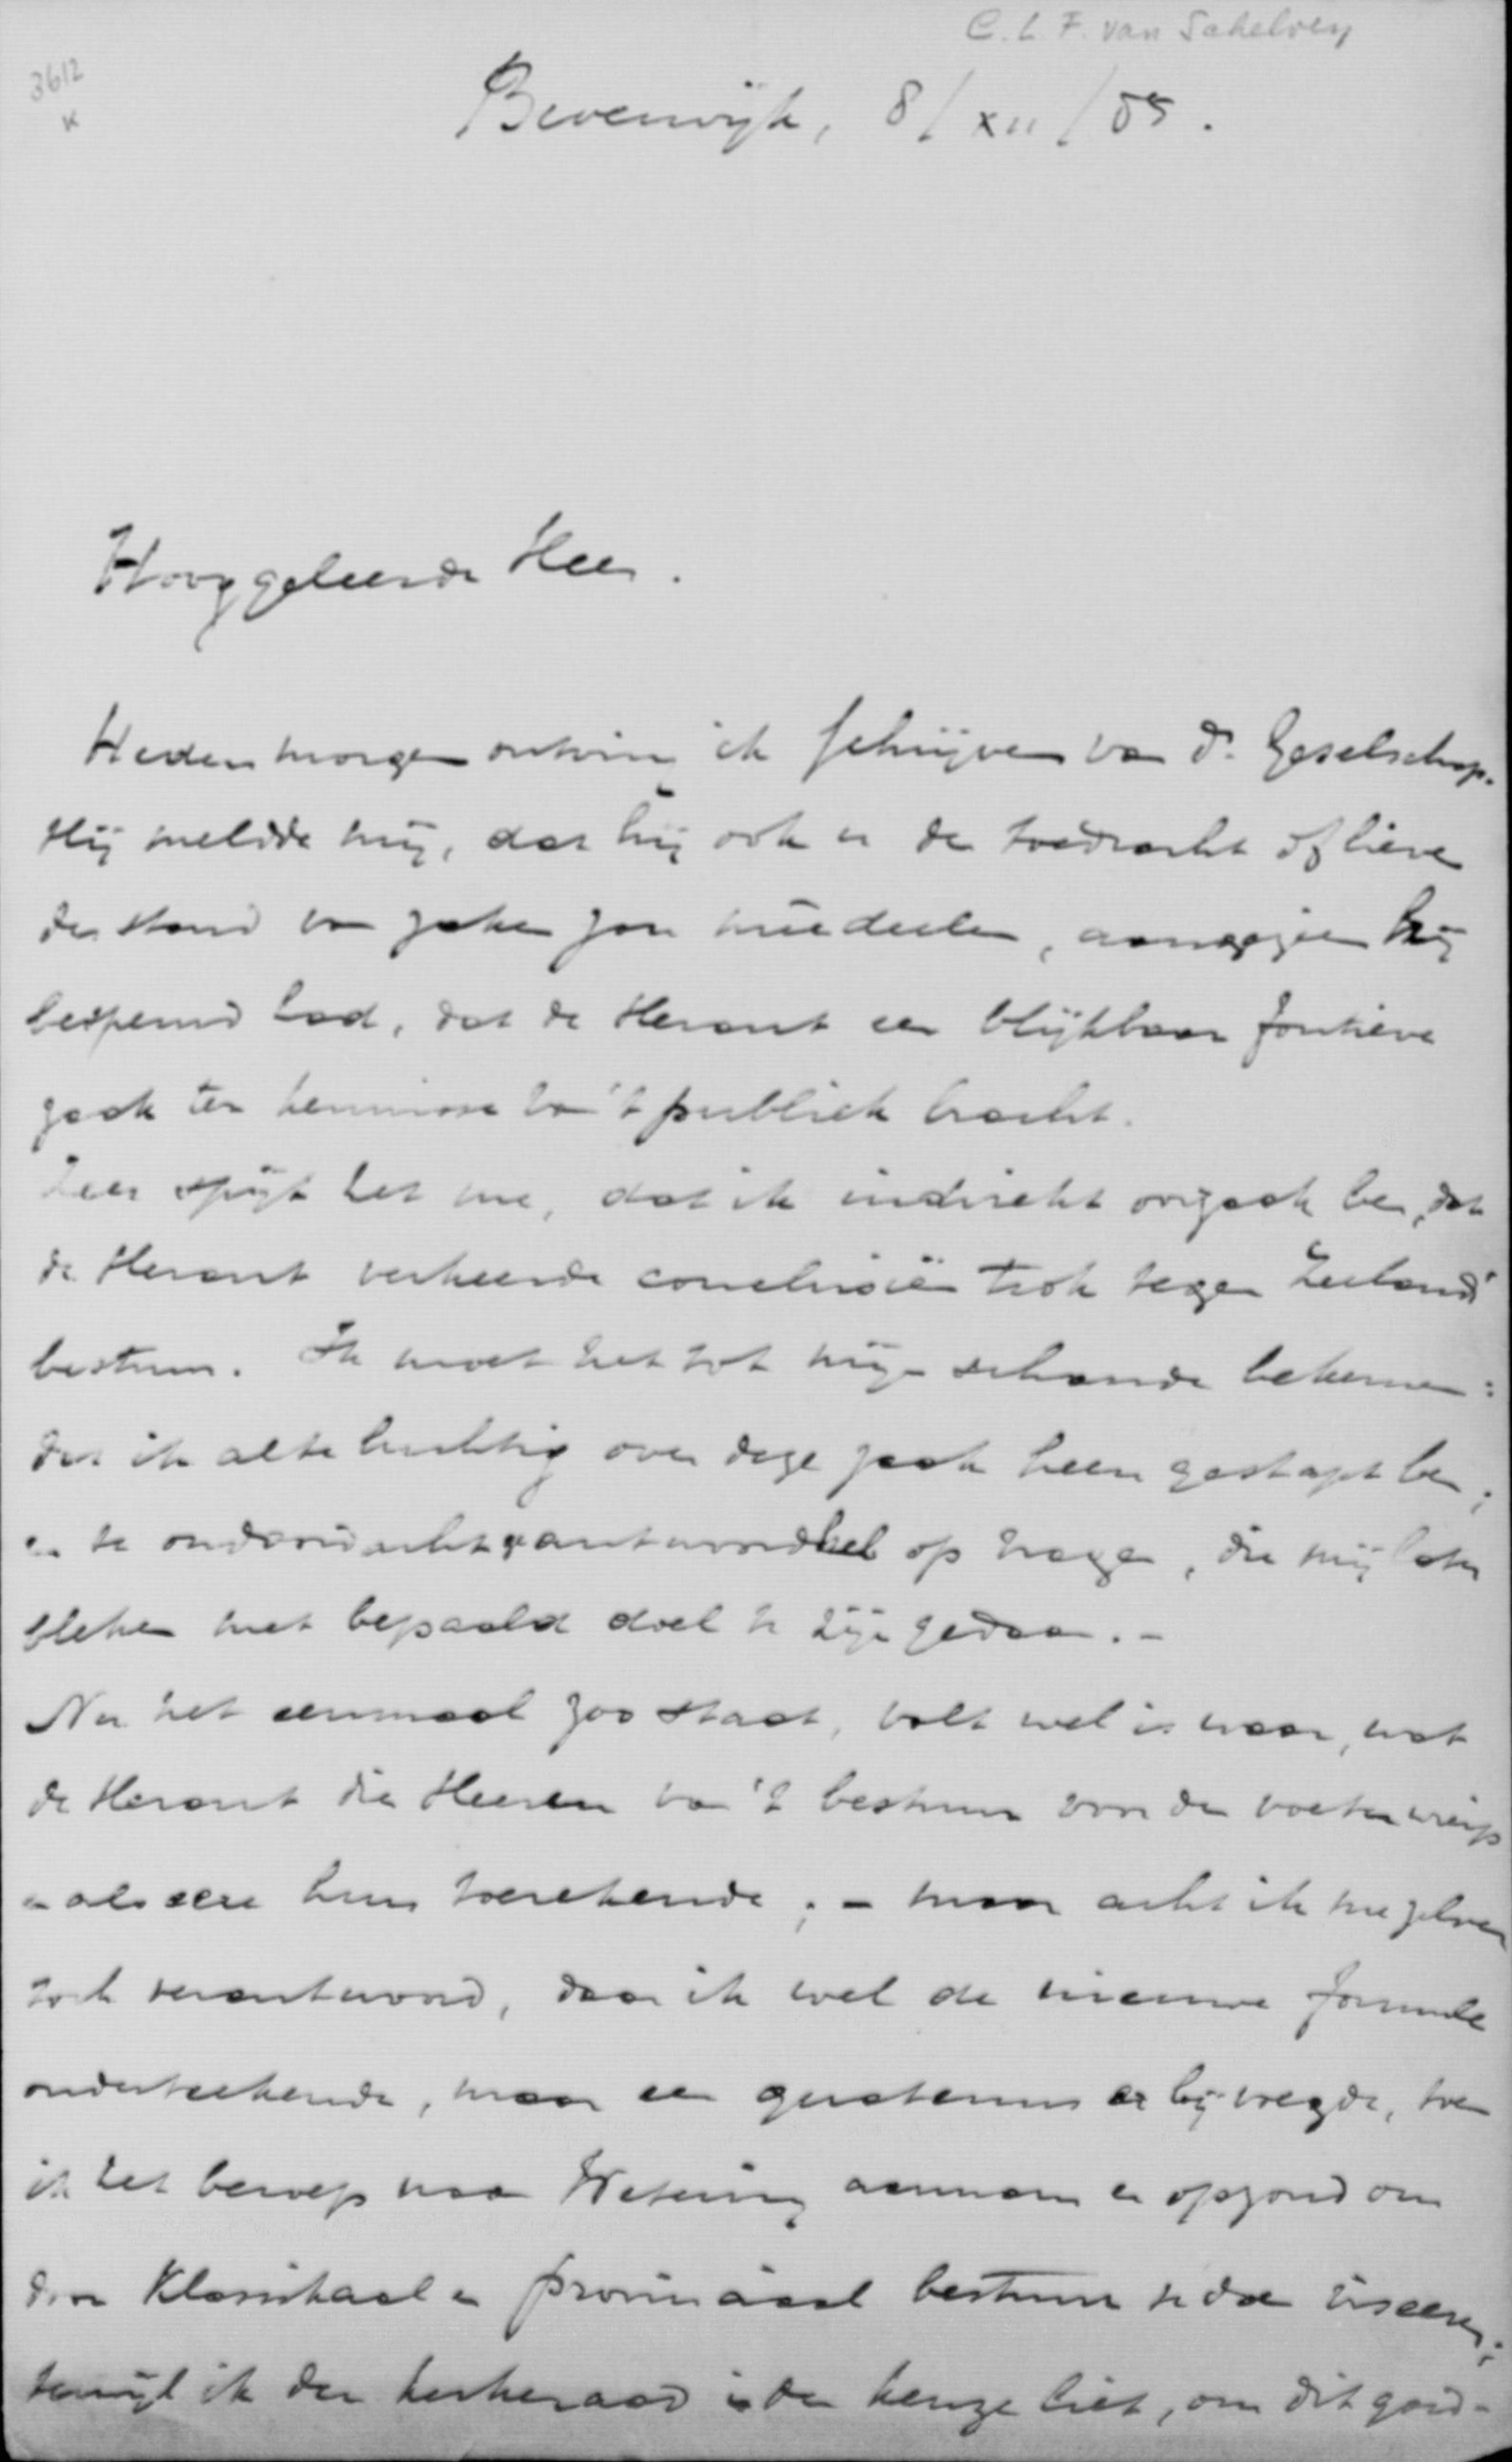 C. L. F. van Schelven
3612
x
Beverwijk, 8/XII/85.
Hooggeleerde Heer.
Heden morgen ontving ik schrijven van Ds. Geselschap.
Hij meldde mij, dat hij ook u de toedracht of liever
den stand van zaken zou meedeelen, aangezien hij
bespeurd had, dat de Heraut een blijkbaar foutieve
zaak ter kennisse van 't publiek bracht.
Zeer spijt het me, dat ik indirekt oorzaak ben, dat
de Heraut verkeerde conclusiën trok tegen Zeelands
bestuur. Ik moet het tot mijn schande bekennen:
dat ik al te luchtig over deze zaak heen gestapt ben;
en te ondoordacht antwoordde op vragen, die mij later
bleken met bepaald doel te zijn gedaan. -
Nu het eenmaal zoo staat, valt wel is waar, wat
de Heraut die Heeren van 't bestuur voor de voeten wierp
en als eere hun toerekende; - maar acht ik me zelven
toch verantwoord, daar ik wel de nieuwe formule
onderteekende, maar een er bij voegde, toen
ik het beroep naar Wetering aannam en opzond om
door Klassikaal en provinciaal bestuur te doen viseeren;
terwijl ik den kerkeraad in de keuze liet, om dit goed-